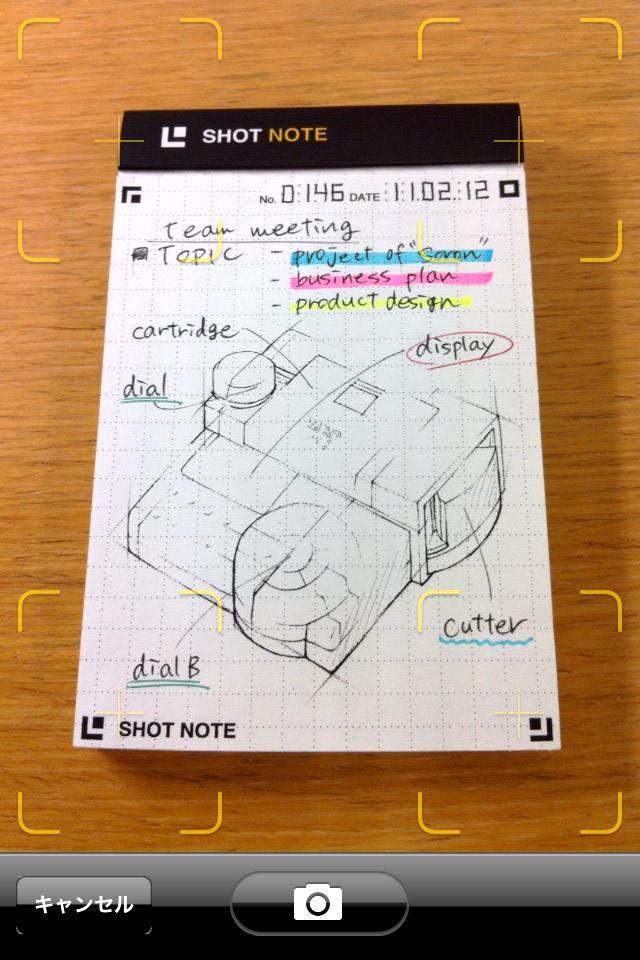 SHOT NOTE
No. 0146 DATE 11.02.12
Team meeting
TOPIC - project of "Coron"
- business plan
- product design
cartridge
display
dial
cutter
dial B
SHOT NOTE
キャンセル